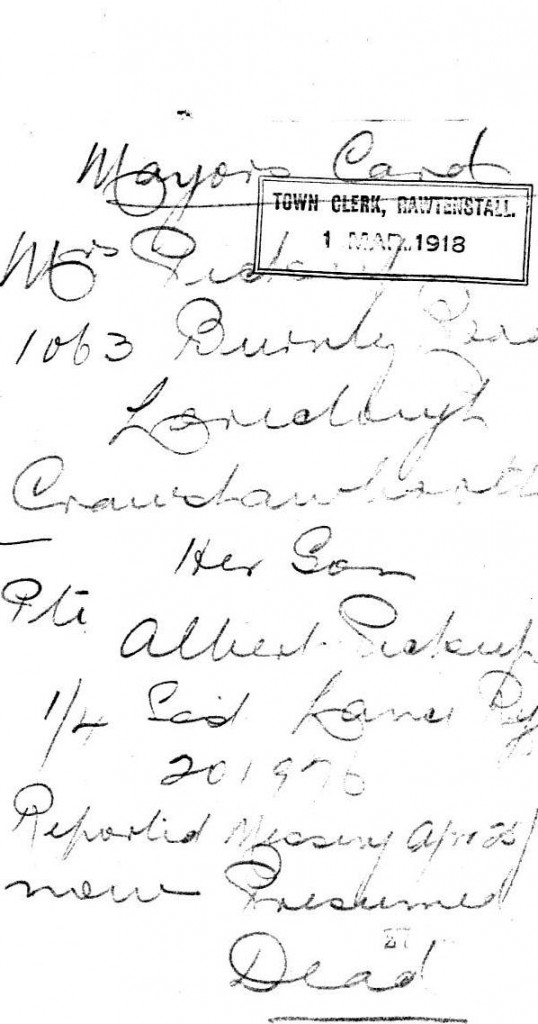 Mayors Card
TOWN CLERK, RAWTENSTALL.
1 MAR. 1918
Mrs Pickup
1063 Burnley Roa
Crawshawbooth
Her Son
Pte
Albert Pickup
1/4 Lanc
201976
Reported Missing Apr 28/
now Presumed
Dead